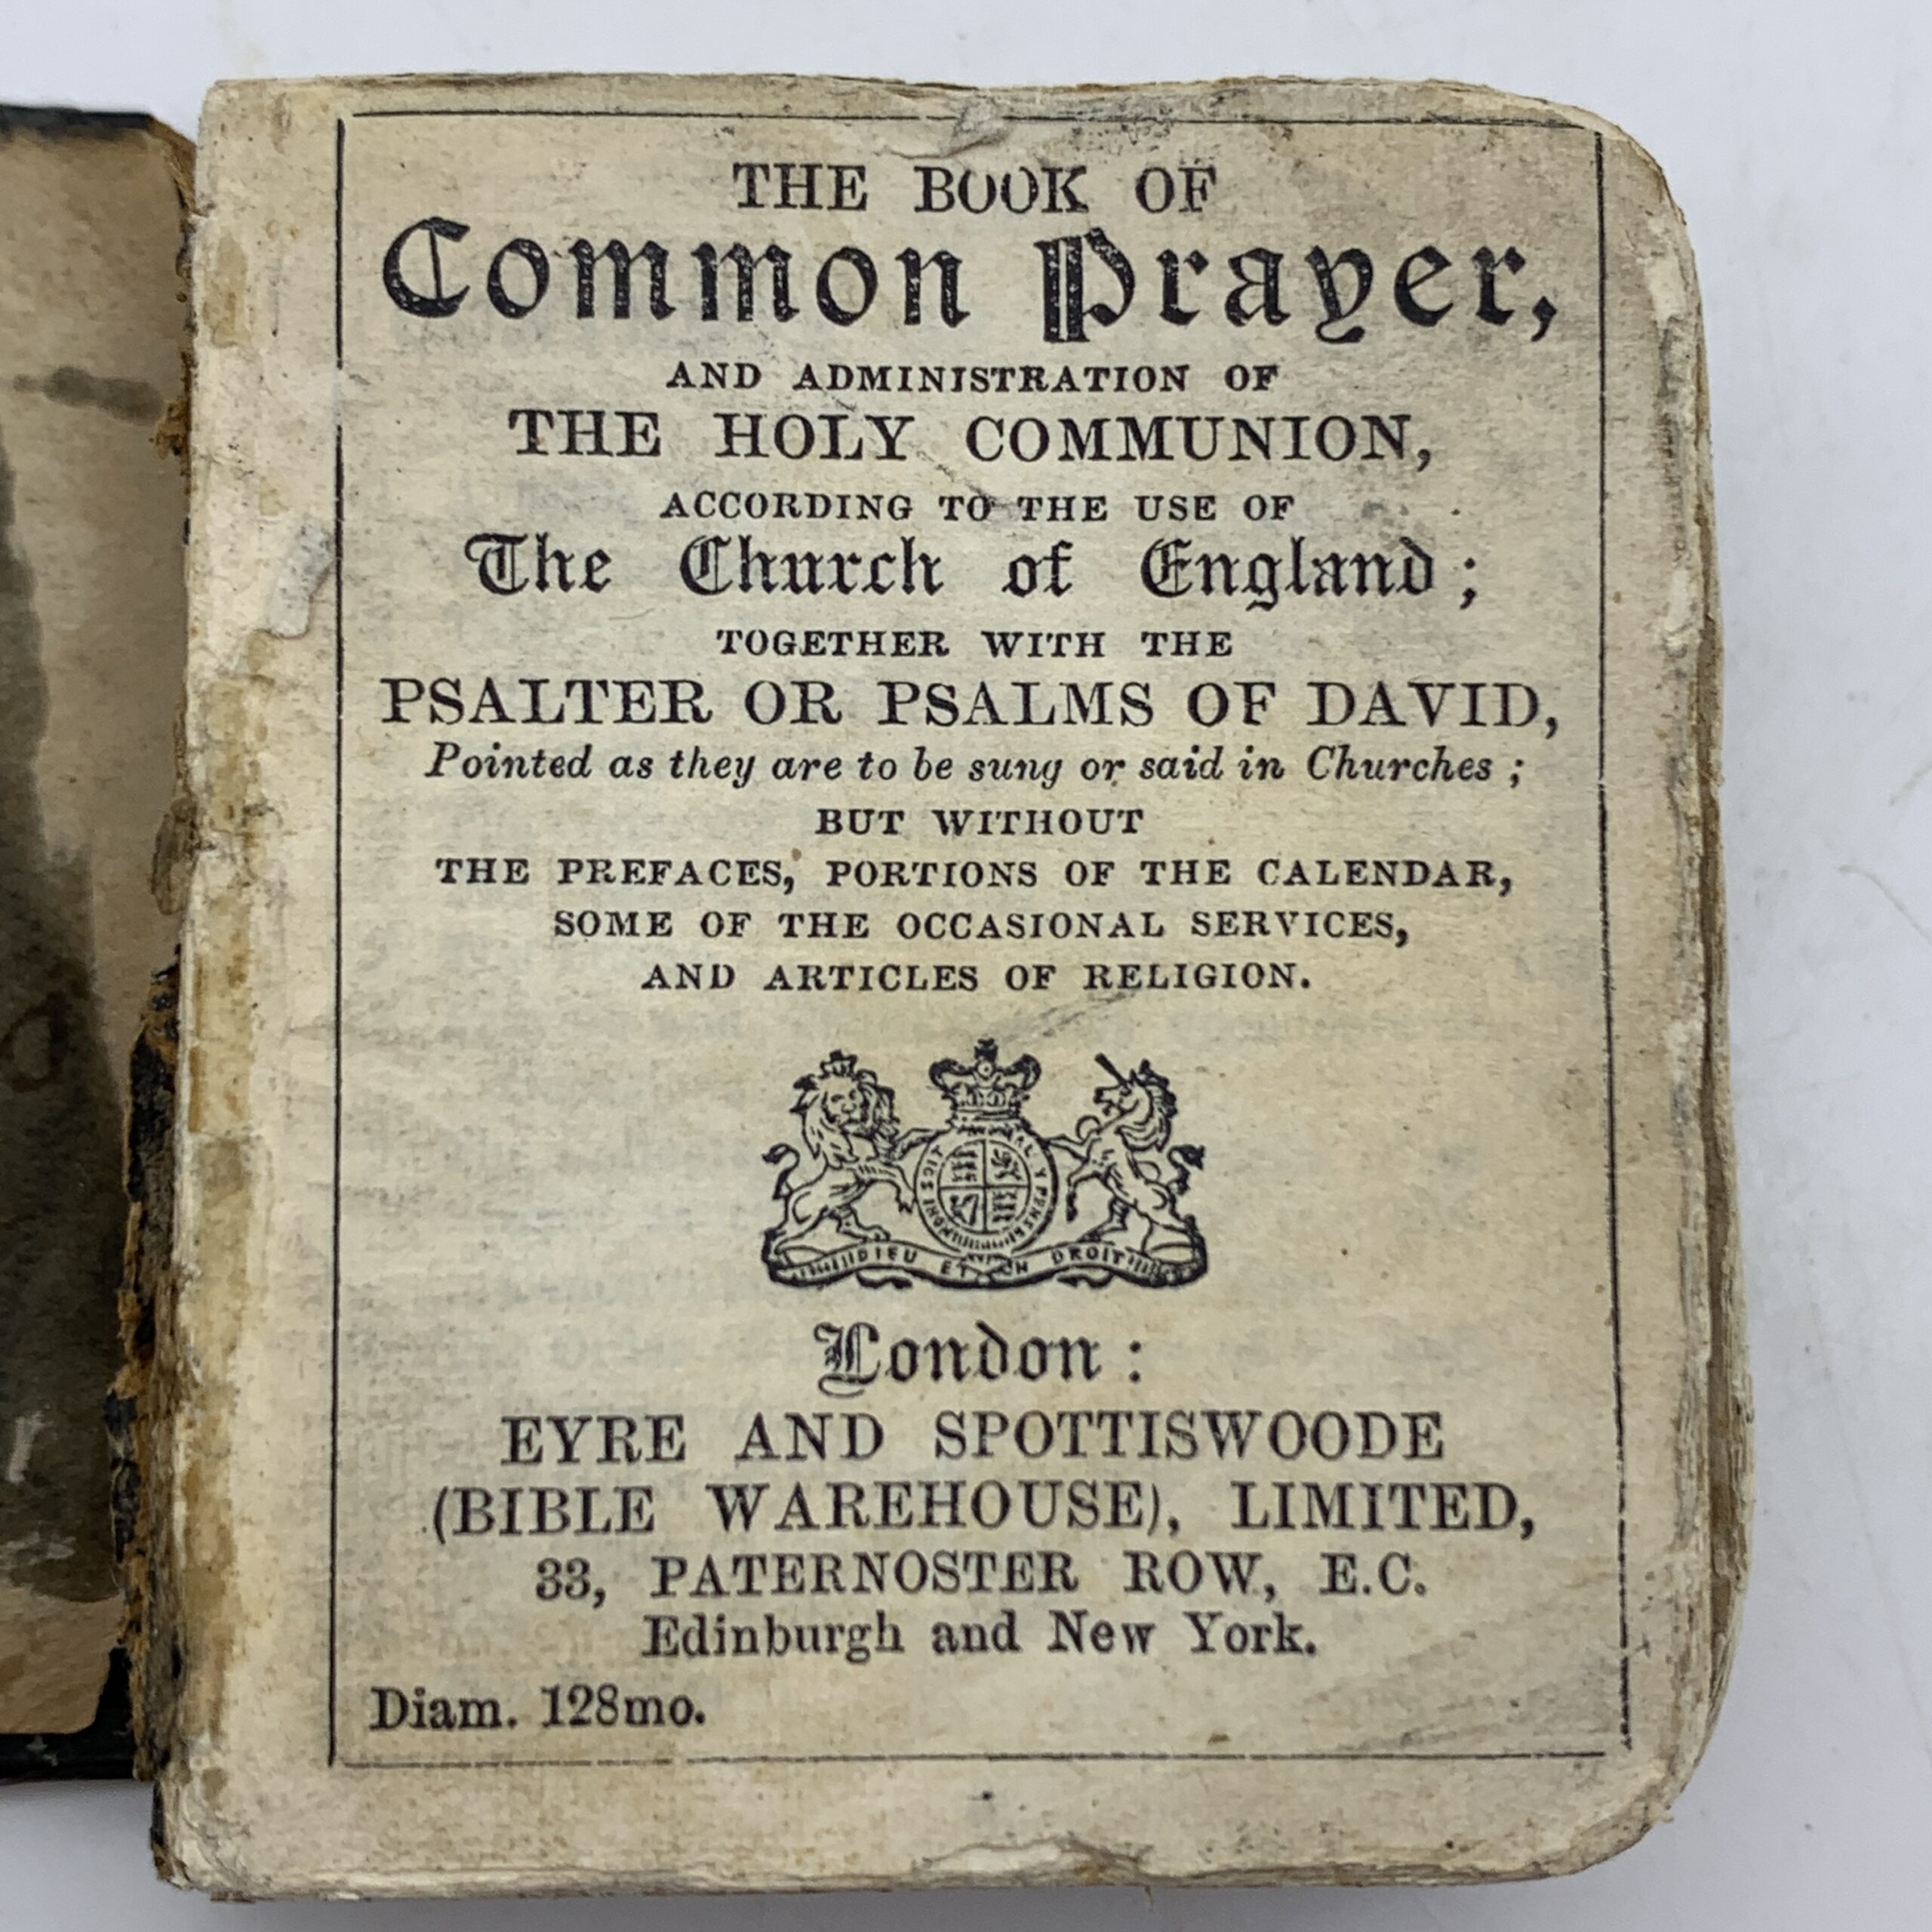 THE BOOK OF
Common Prayer,
AND ADMINISTRATION OF
THE HOLY COMMUNION,
ACCORDING TO THE USE OF
The Church of England;
TOGETHER WITH THE
PSALTER OR PSALMS OF DAVID,
Pointed as they are to be sung or said in Churches;
BUT WITHOUT
THE PREFACES, PORTIONS OF THE CALENDAR,
SOME OF THE OCCASIONAL SERVICES,
AND ARTICLES OF RELIGION.
DIEU ET DROIT
London:
EYRE AND SPOTTISWOODE
(BIBLE WAREHOUSE), LIMITED,
33, PATERNOSTER ROW, E.C.
Edinburgh and New York.
Diam. 128mo.